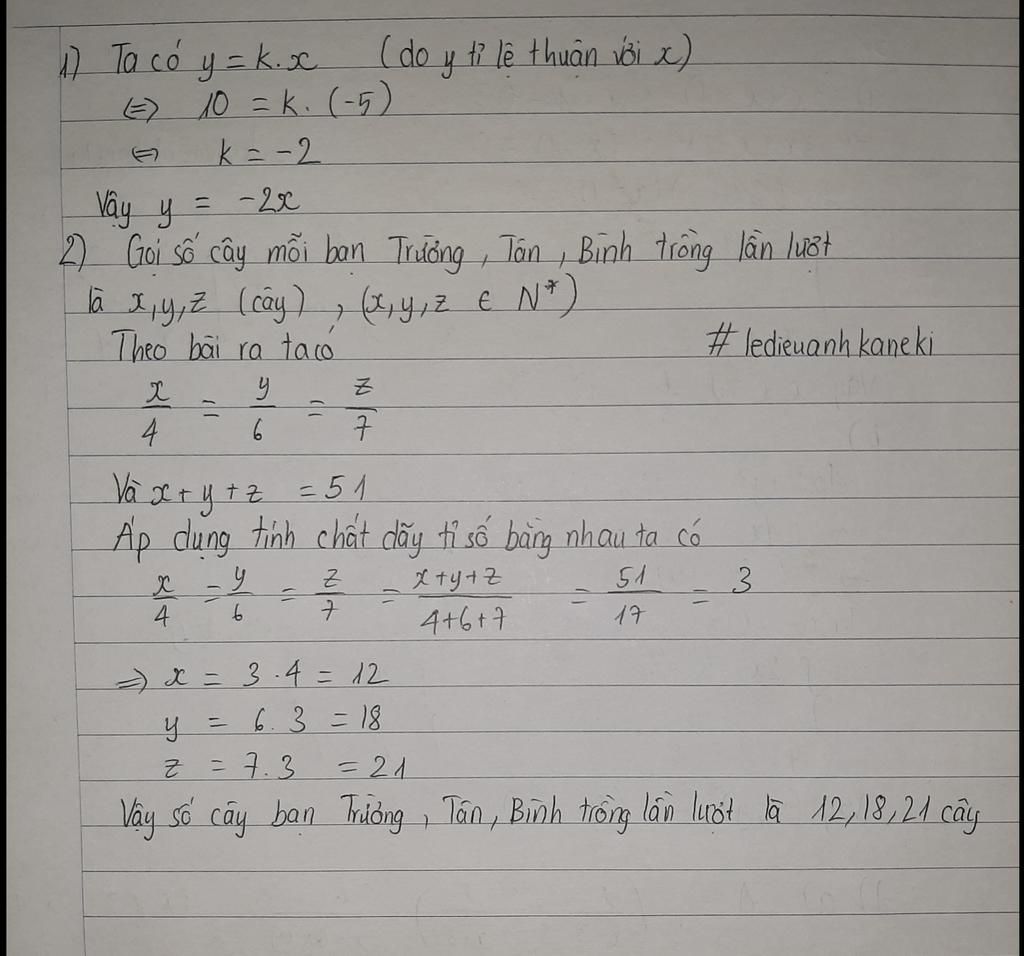 1) Ta có y = k.x (do y tỉ lệ thuận với x)
⇔ 10 = k. (-5)
⇔ k = -2
Vậy y = -2x
2) Gọi số cây mỗi bạn Trường, Tân, Bình trồng lần lượt
là x,y,z (cây), (x,y,z ∈ N*)
Theo bài ra ta có #ledieuanhkaneki
x/4 = y/6 = z/7
Và x+y+z = 51
Áp dụng tính chất dãy tỉ số bằng nhau ta có
x/4 = y/6 = z/7 = x+y+z/4+6+7 = 51/17 = 3
⇒ x = 3.4 = 12
y = 6.3 = 18
z = 7.3 = 21
Vậy số cây bạn Trường, Tân, Bình trồng lần lượt là 12,18,21 cây